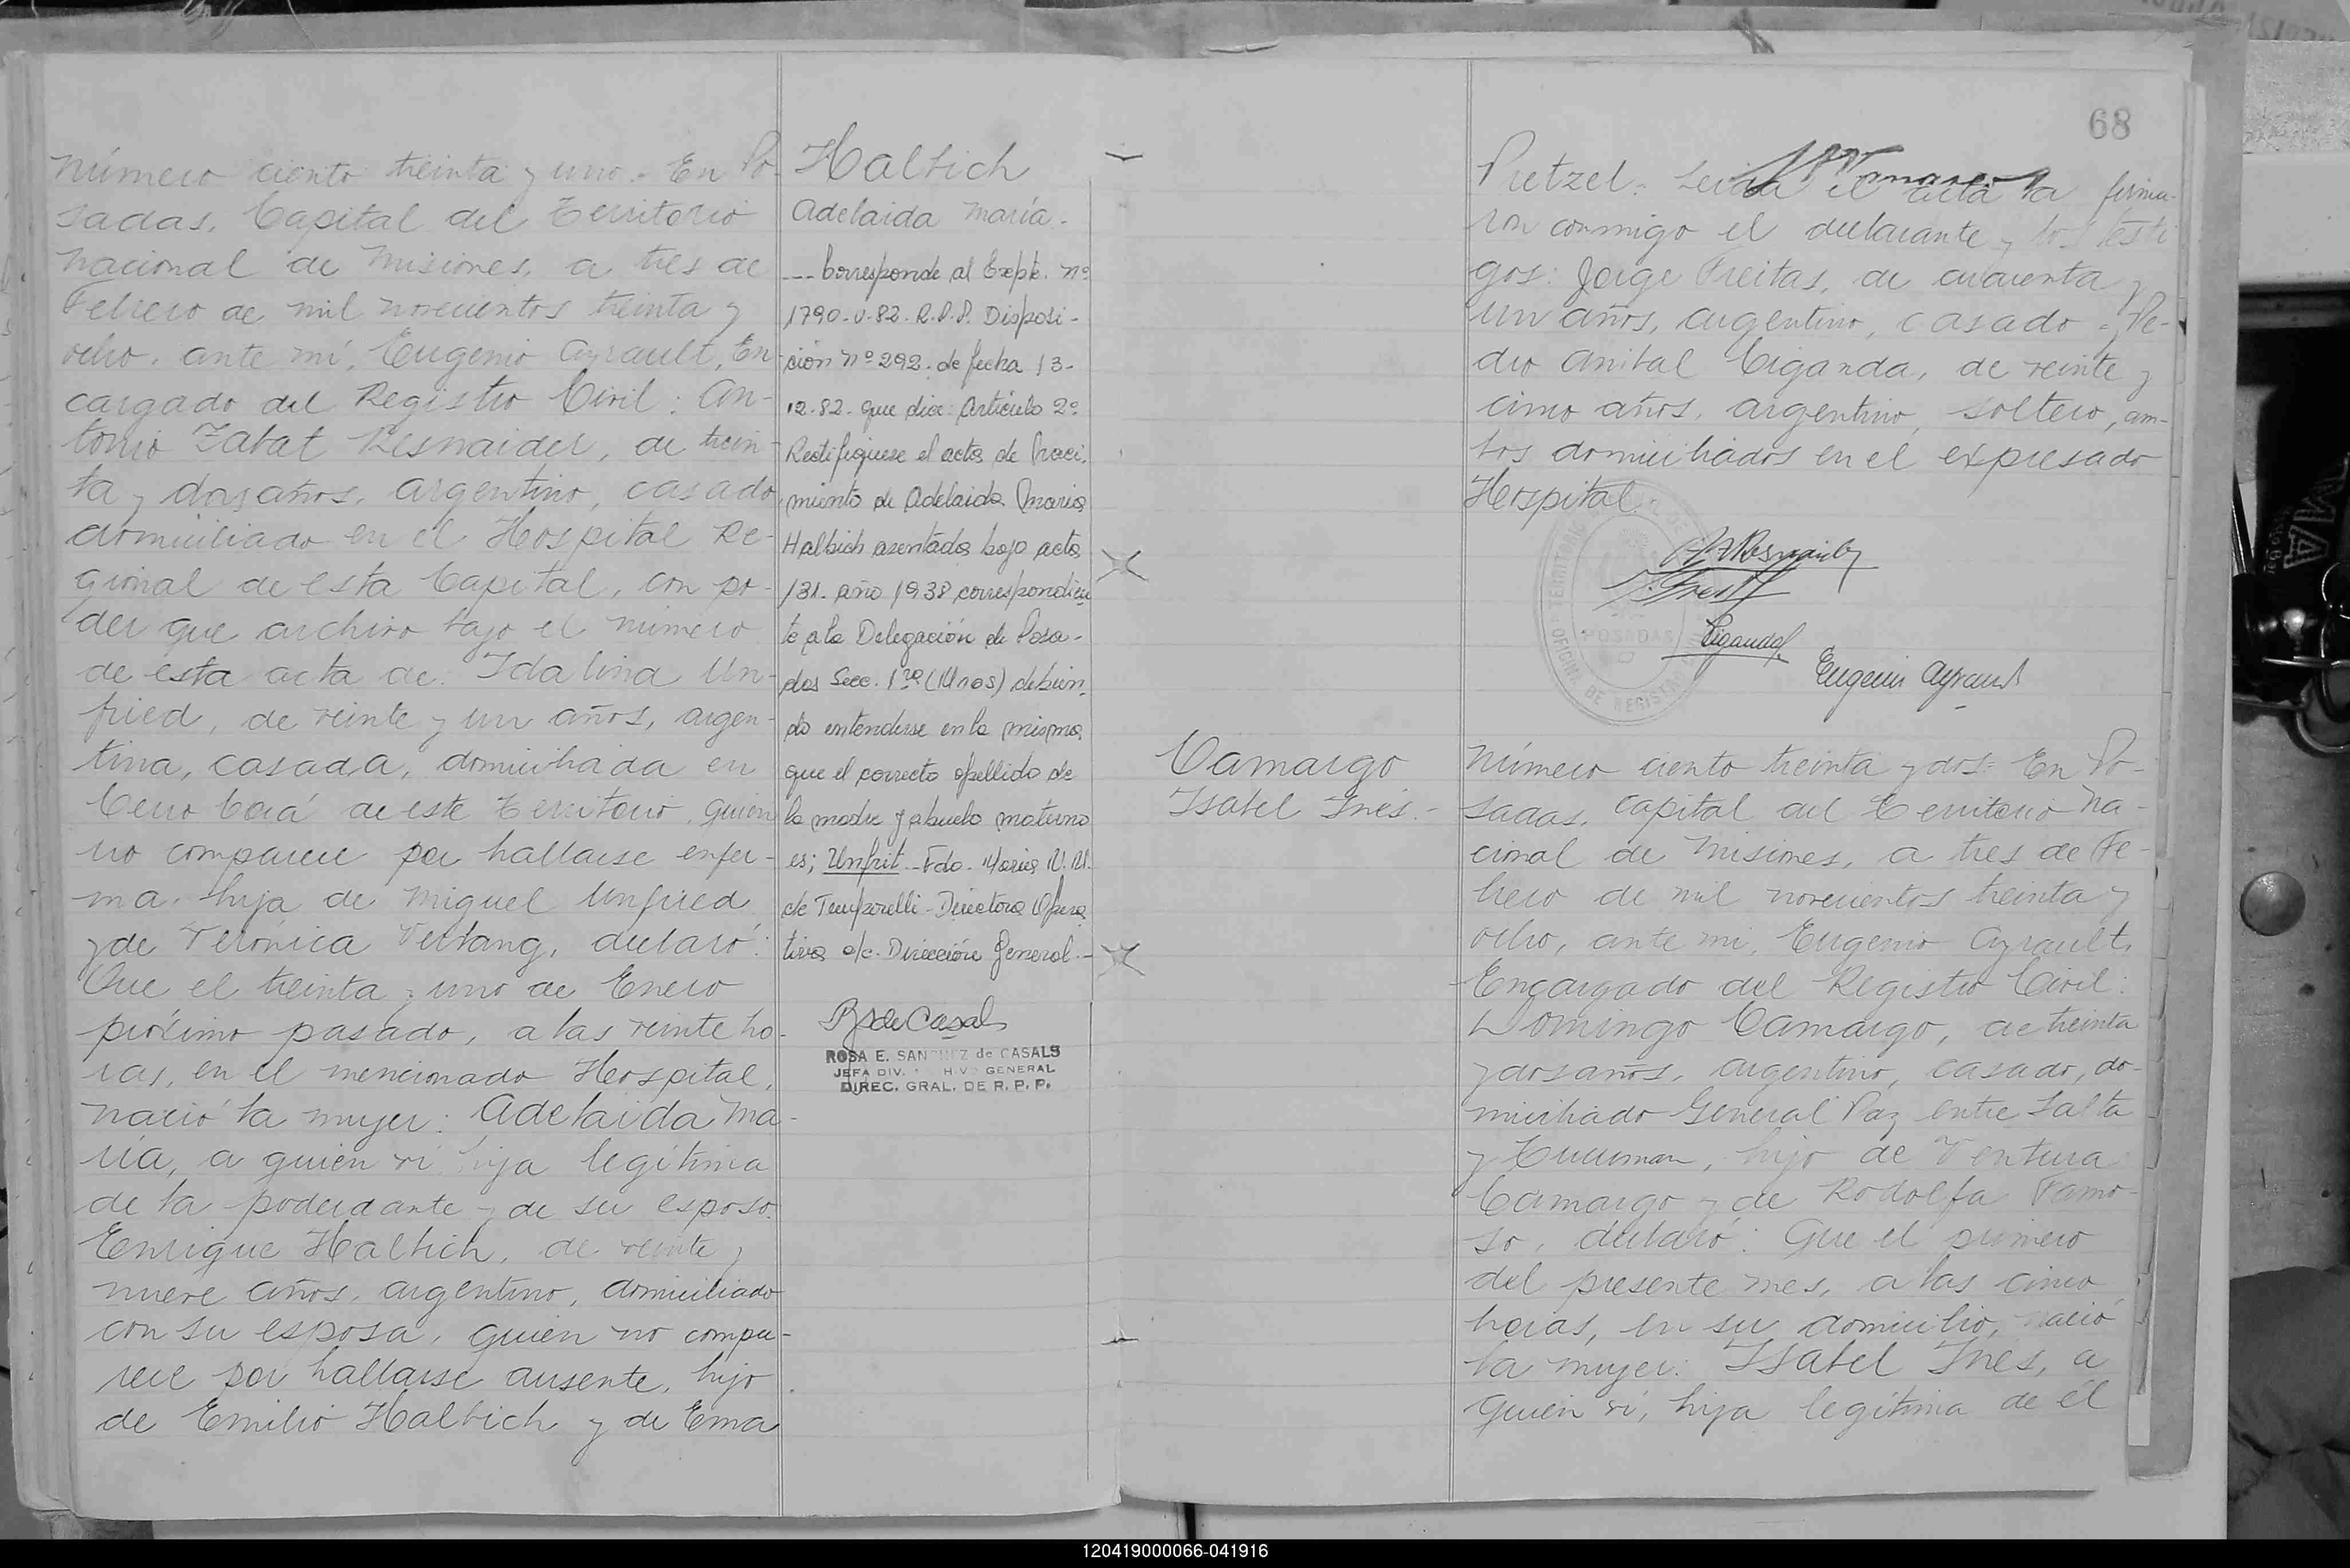 Número ciento treinta y uno.- En Po-
sadas, Capital del Territorio
Nacional de Misiones, a tres de
Febrero de mil novecientos treinta y
ocho, ante mí, Eugenio Ayrault, En-
cargado del Registro Civil: An-
tonio Zabat Resnaider, de trein-
ta y dos años, argentino, casado
domiciliado en el Hospital Re-
gional de esta Capital, con po-
der que archivo bajo el número
de esta acta de: Idalina Un-
fried, de veinte y un años, argen-
tina, casada, domiciliada en
Cerro Corá de este Territorio, quien
no comparece por hallarse enfer-
ma, hija de Miguel Unfried
y de Verónica Verbang, declaró:
Que el treinta y uno de Enero
próximo pasado, a las veinte ho-
ras, en el mencionado Hospital,
nació la mujer: Adelaida Ma-
ría, a quien ví hija legítima
de la poderdante y de su esposo
Enrique Halbich, de veinte y
nueve años, argentino, domiciliado
con su esposa, quien no compa-
rece por hallarse ausente, hijo
de Emilio Halbich y de Ema
Halbich
Adelaida María.
--- Corresponde al Expte. nº
1790-U-82-R.P.P. Disposi-
ción nº 292. de fecha 13-
12-82- que dice: Artículo 2º
Rectifíquese el acta de naci-
miento de Adelaida Maria
Halbich asentada bajo acta
131- año 1938 correspondien
te a la Delegación de Posa-
das Secc. 1ra (Unos) debien-
do entenderse en la misma
que el correcto apellido de
la madre y abuelo materno
es; Unfrit.- Fdo.
de Temporelli - Directora Opera
tiva a/c. Dirección General.-
ROSA E. SANCHEZ de CASALS
JEFA DIV. GENERAL
DIREC. GRAL. DE R. P. P.
68
Pretzel. Leída el acta la firma-
ron conmigo el declarante y los testi
gos: Jorge Freitas, de cuarenta y
un años, argentino, casado y Pe-
dro Anibal Ciganda, de veinte y
cinco años, argentino, soltero, am-
bos domiciliados en el expresado
Hospital.
POSADAS
Ciganda
Eugenio Ayrault
Camargo
Isabel Inés.-
Número ciento treinta y dos: En Po-
sadas, Capital del Territorio Na-
cional de Misiones, a tres de Fe-
brero de mil novecientos treinta y
ocho, ante mi, Eugenio Ayrault,
Encargado del Registro Civil:
Domingo Camargo, de treinta
y dos años, argentino, casado, do-
miciliado General Paz entre Salta
y Tucuman, hijo de Ventura
Camargo y de Rodolfa Ramo-
so, declaró: Que el primero
del presente mes, a las cinco
horas, en su domicilio, nació
la mujer: Isabel Inés, a
quien ví, hija legítima de él
120419000066-041916